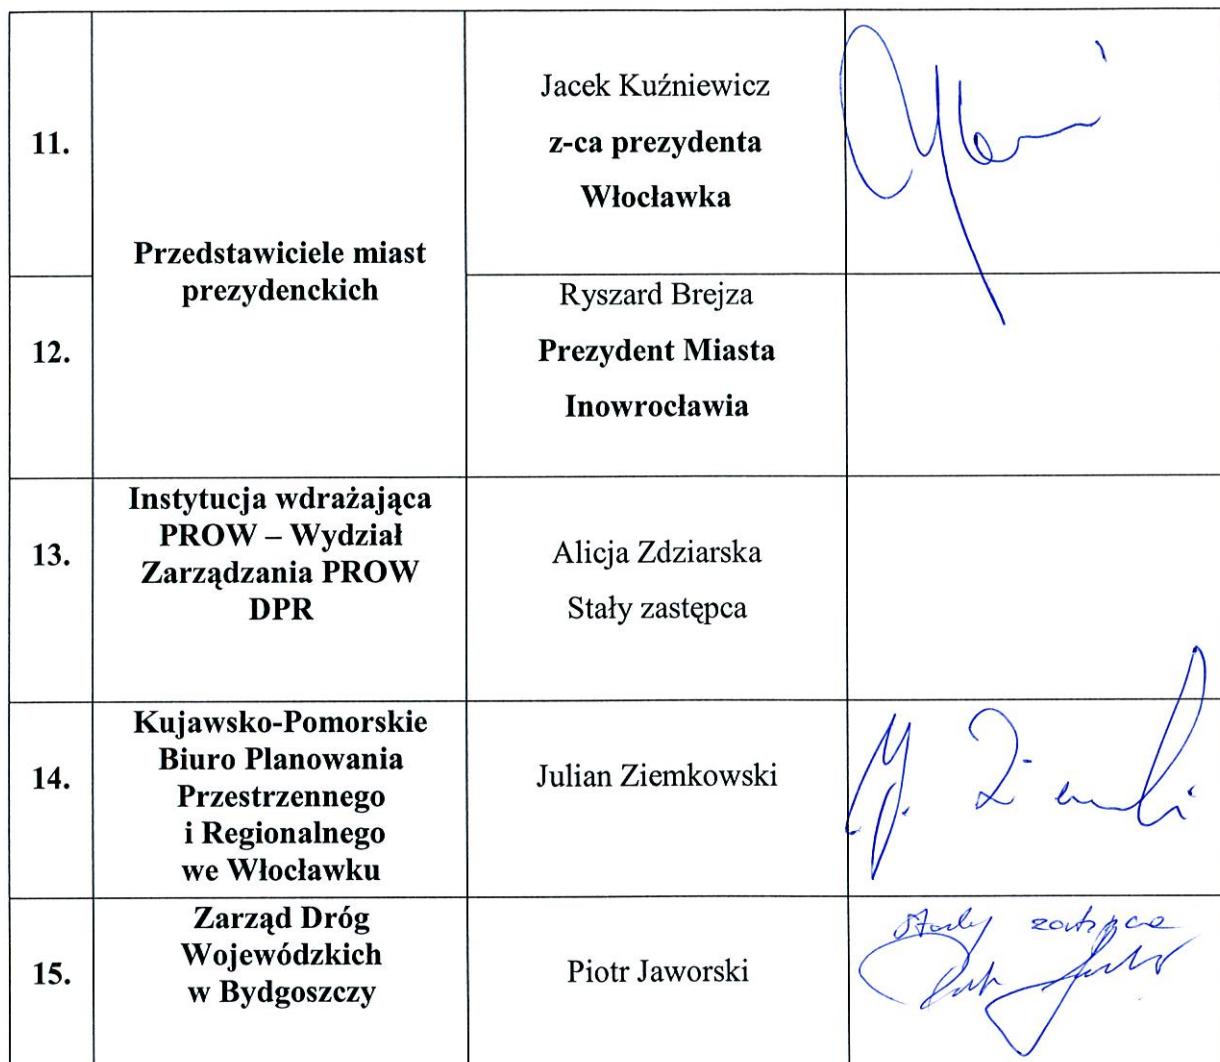 11.
Przedstawiciele miast
prezydenckich
Jacek Kuźniewicz
z-ca prezydenta
Włocławka
12.
Ryszard Brejza
Prezydent Miasta
Inowrocławia
13.
Instytucja wdrażająca
PROW – Wydział
Zarządzania PROW
DPR
Alicja Zdziarska
Stały zastępca
14.
Kujawsko-Pomorskie
Biuro Planowania
Przestrzennego
i Regionalnego
we Włocławku
Julian Ziemkowski
15.
Zarząd Dróg
Wojewódzkich
w Bydgoszczy
Piotr Jaworski
stały zastępca